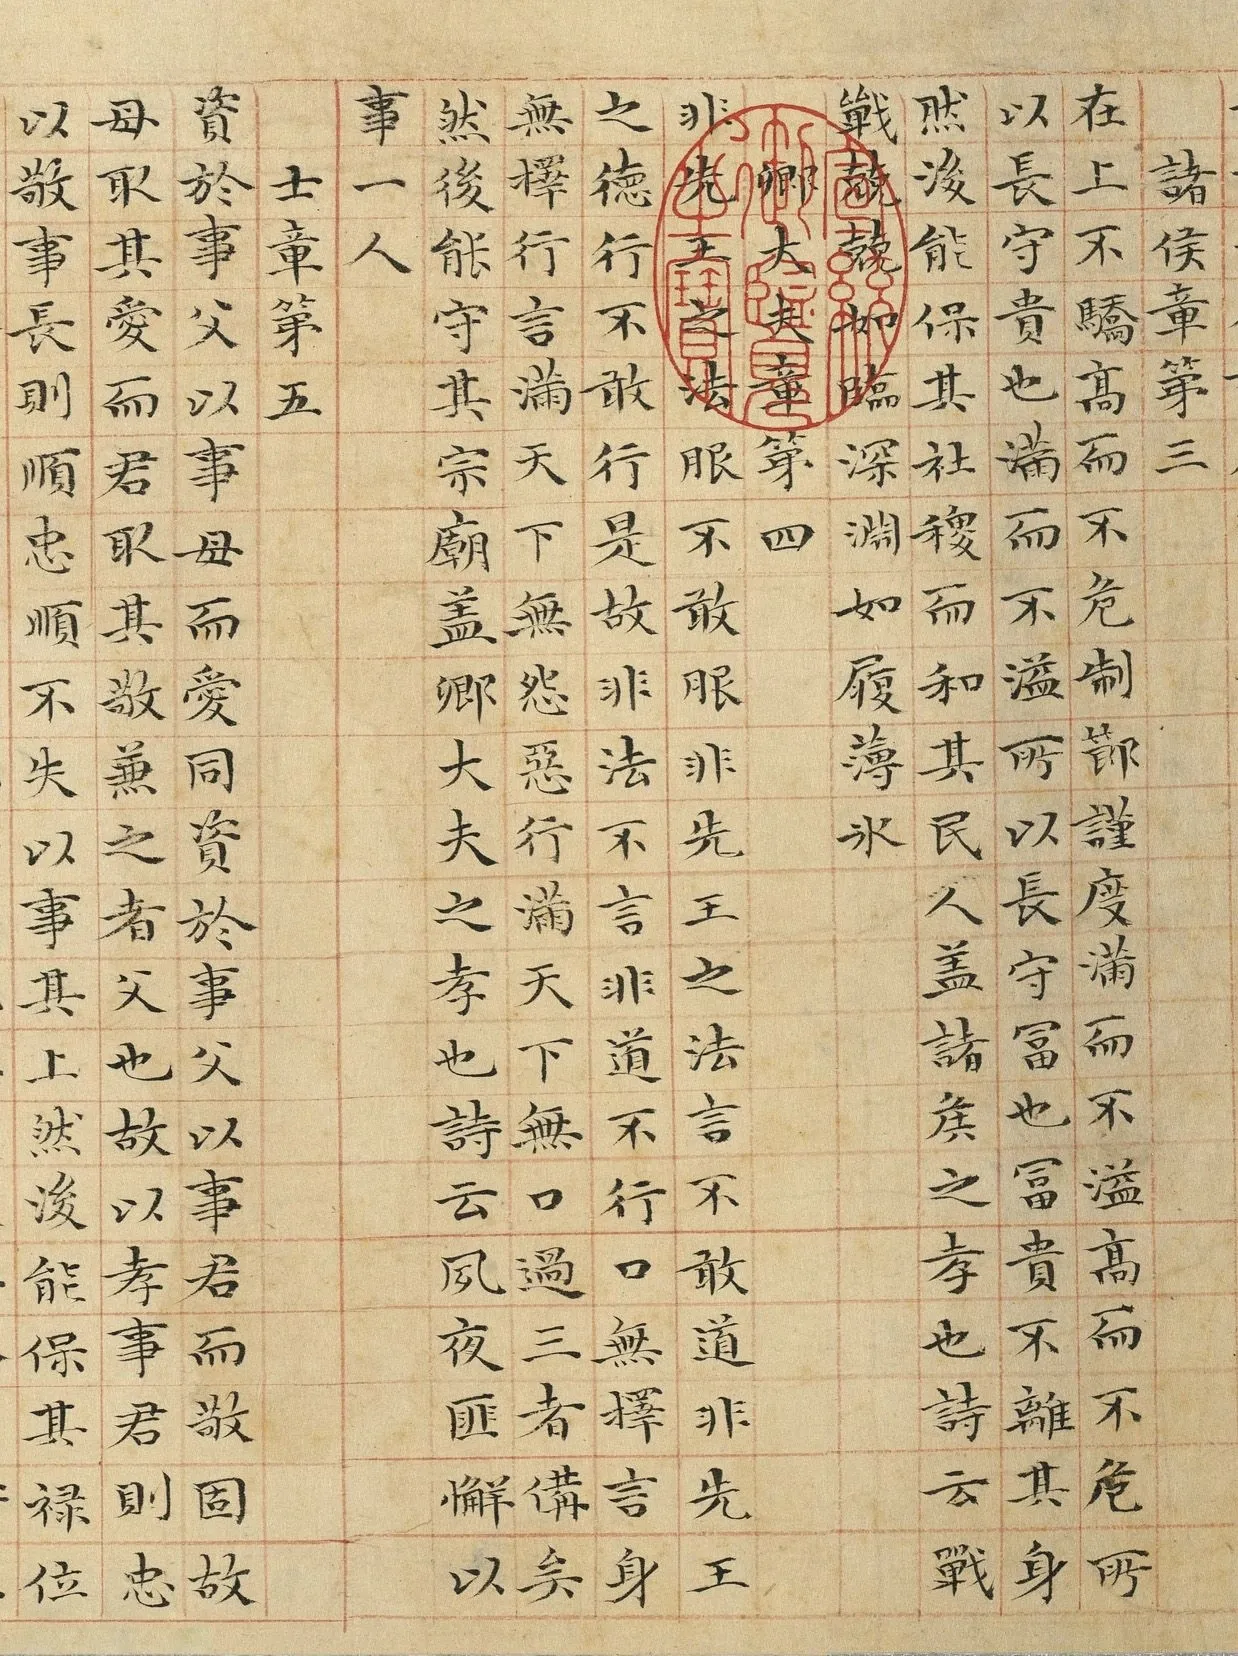 諸侯章第三
在上不驕高而不危制節謹度滿而不溢高而不危所
以長守貴也滿而不溢所以長守冨也冨貴不離其身
然後能保其社稷而和其民人盖諸侯之孝也詩云戰
戰兢兢如臨深淵如履薄氷
卿大夫章第四
非先王之法服不敢服非先王之法言不敢道非先王
之德行不敢行是故非法不言非道不行口無擇言身
無擇行言滿天下無怨惡行滿天下無口過三者備矣
然後能守其宗廟盖卿大夫之孝也詩云夙夜匪懈以
事一人
士章第五
資於事父以事母而愛同資於事父以事君而敬固故
母取其愛而君取其敬兼之者父也故以孝事君則忠
以敬事長則順忠順不失以事其上然後能保其禄位
宣統御覽之寶